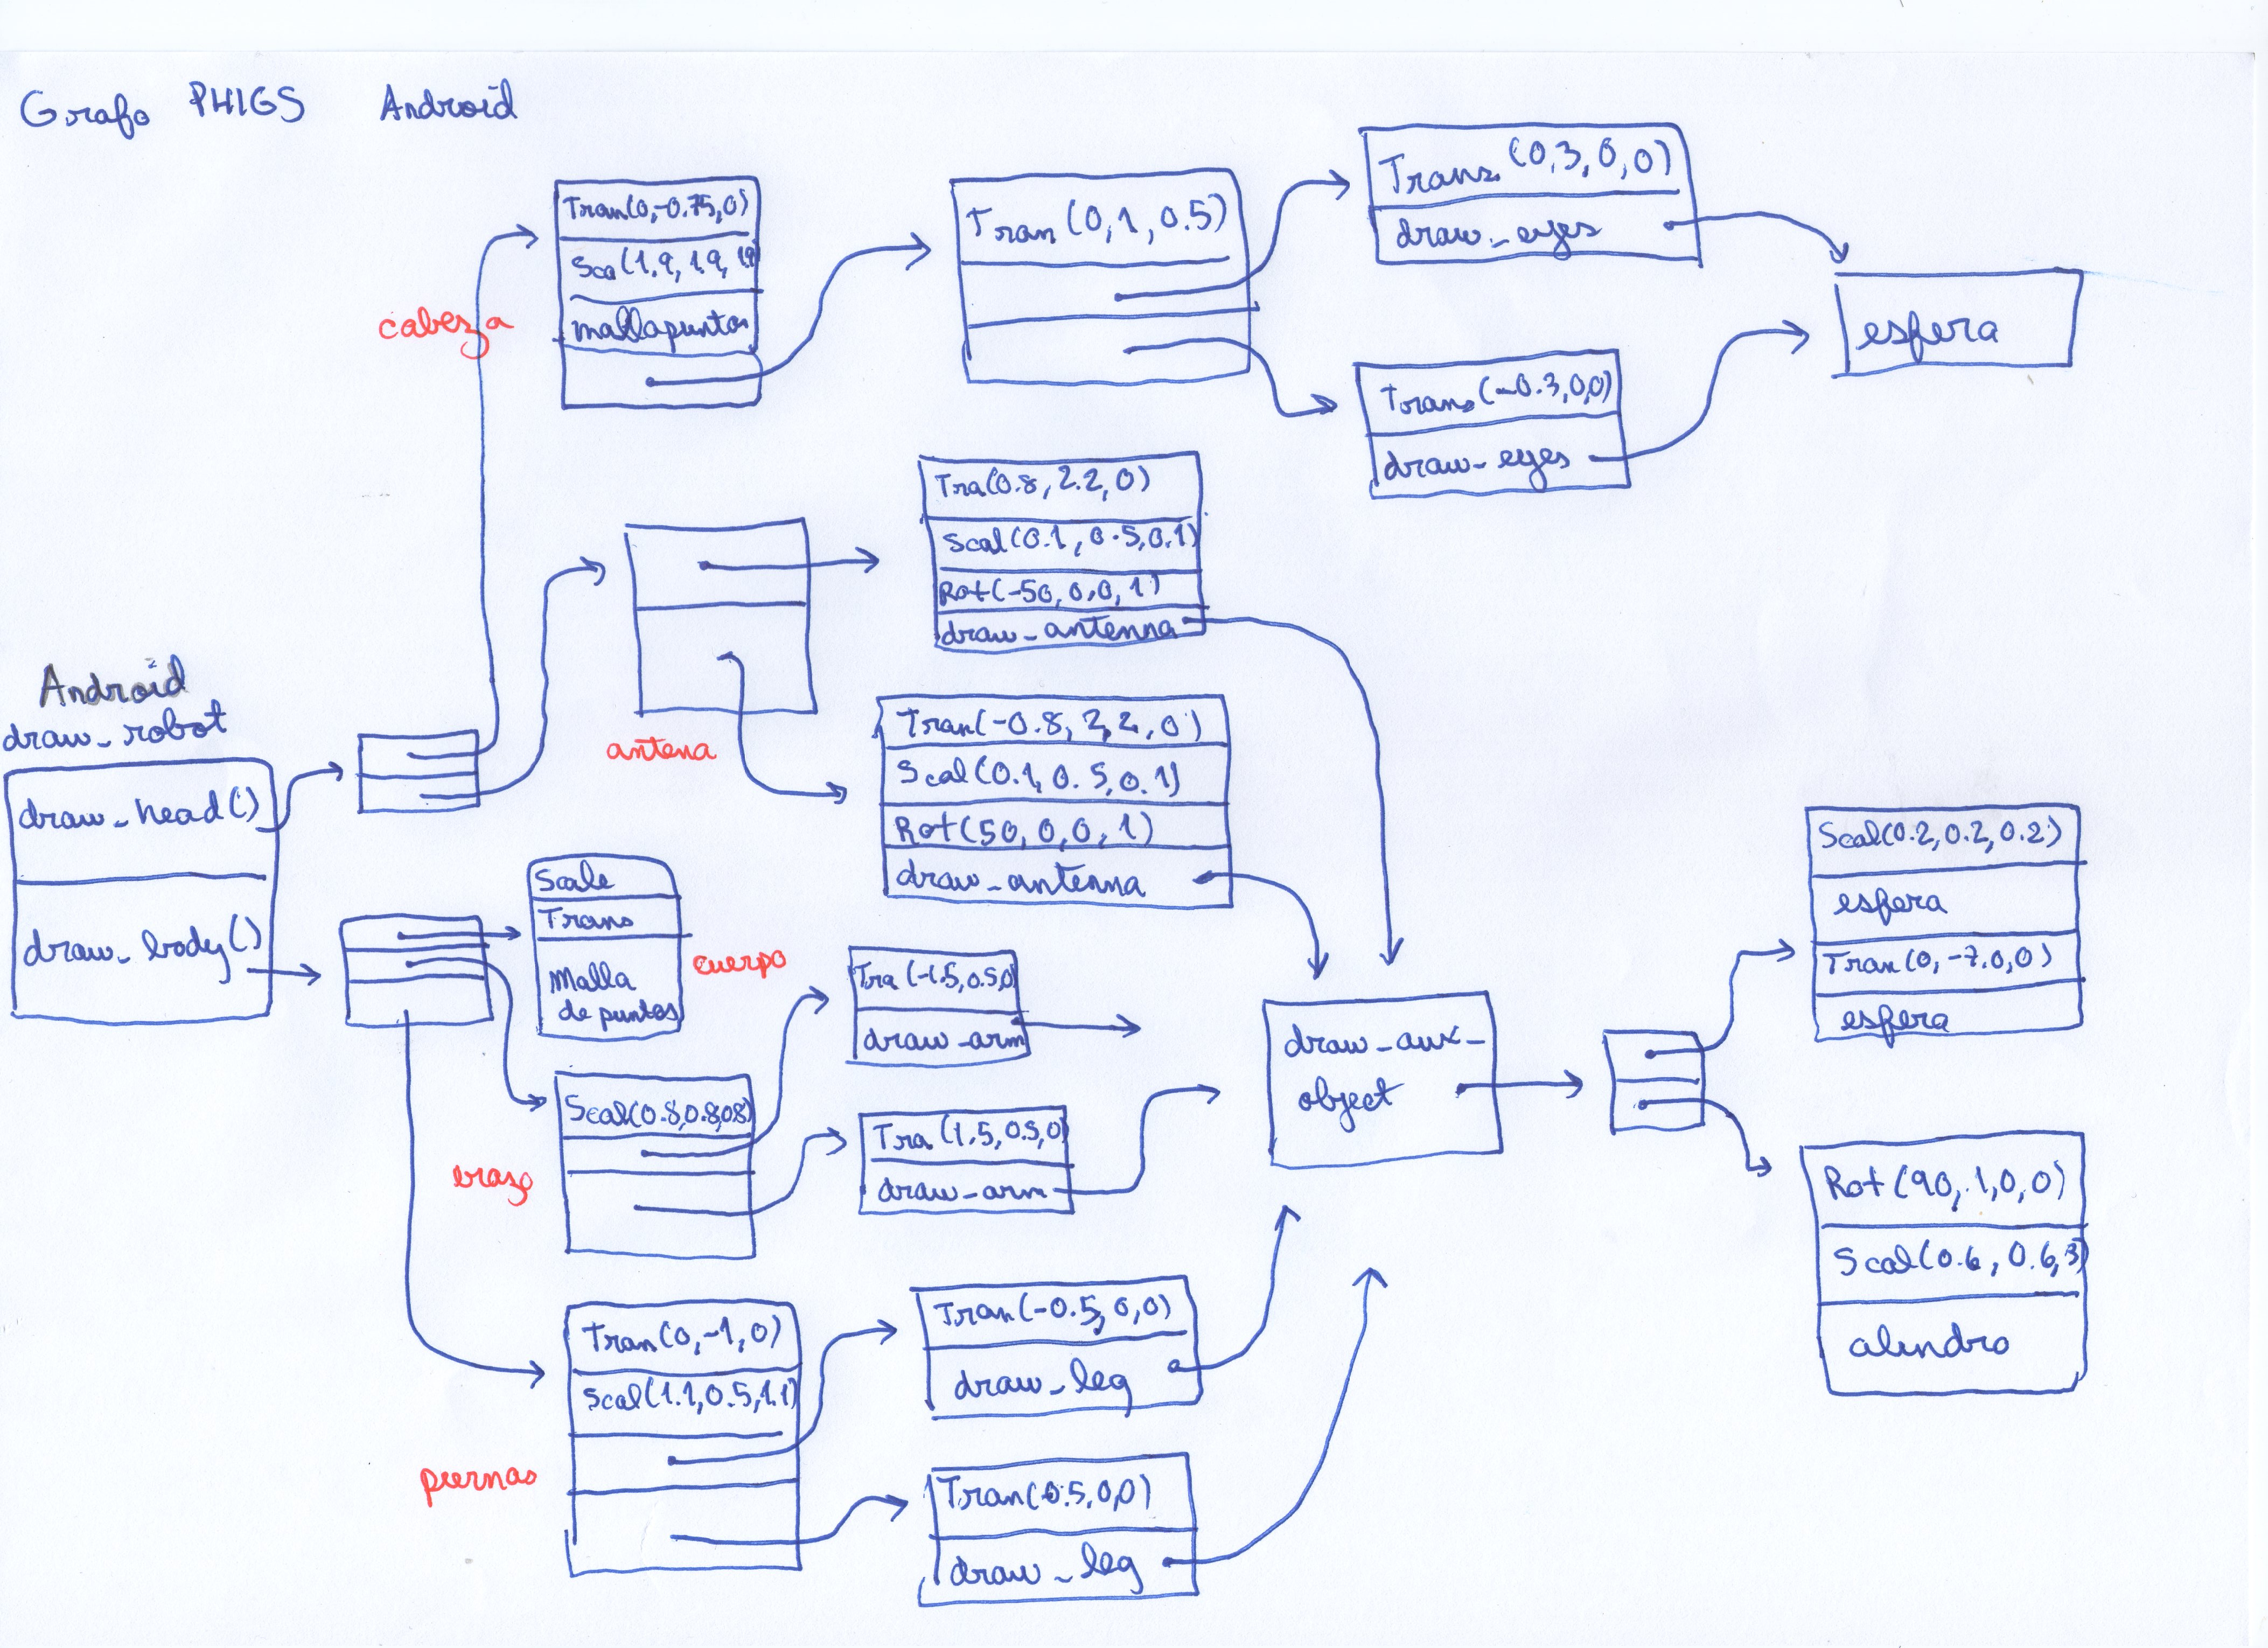 Grafo PHIGS Android
Android
draw_robot
draw_head()
draw_body()
cabeza
Tran(0,-0.75,0)
Sca(1.9,1.9,1.9)
malla puntos
Tran(0,1,0.5)
Trans(0,3,0,0)
draw_eyes
Trans(-0.3,0,0)
draw_eyes
esfera
antena
Tra(0.8,2.2,0)
Scal(0.1,0.5,0.1)
Rot(-50,0,0,1)
draw_antenna
Tran(-0.8,2,2,0)
Scal(0.1,0.5,0.1)
Rot(50,0,0,1)
draw_antenna
Scale
Trans
Malla
de puntos
cuerpo
brazo
Scal(0.8,0.8,0.8)
Tra(-1.5,0.5,0)
draw_arm
Tra(1.5,0.5,0)
draw_arm
piernas
Tran(0,-1,0)
Scal(1.1,0.5,1.1)
Tran(-0.5,0,0)
draw_leg
Tran(0.5,0,0)
draw_leg
draw_aux_
object
Scal(0.2,0.2,0.2)
esfera
Tran(0,-7.0,0)
esfera
Rot(90,1,0,0)
Scal(0.6,0.6,3)
cilindro